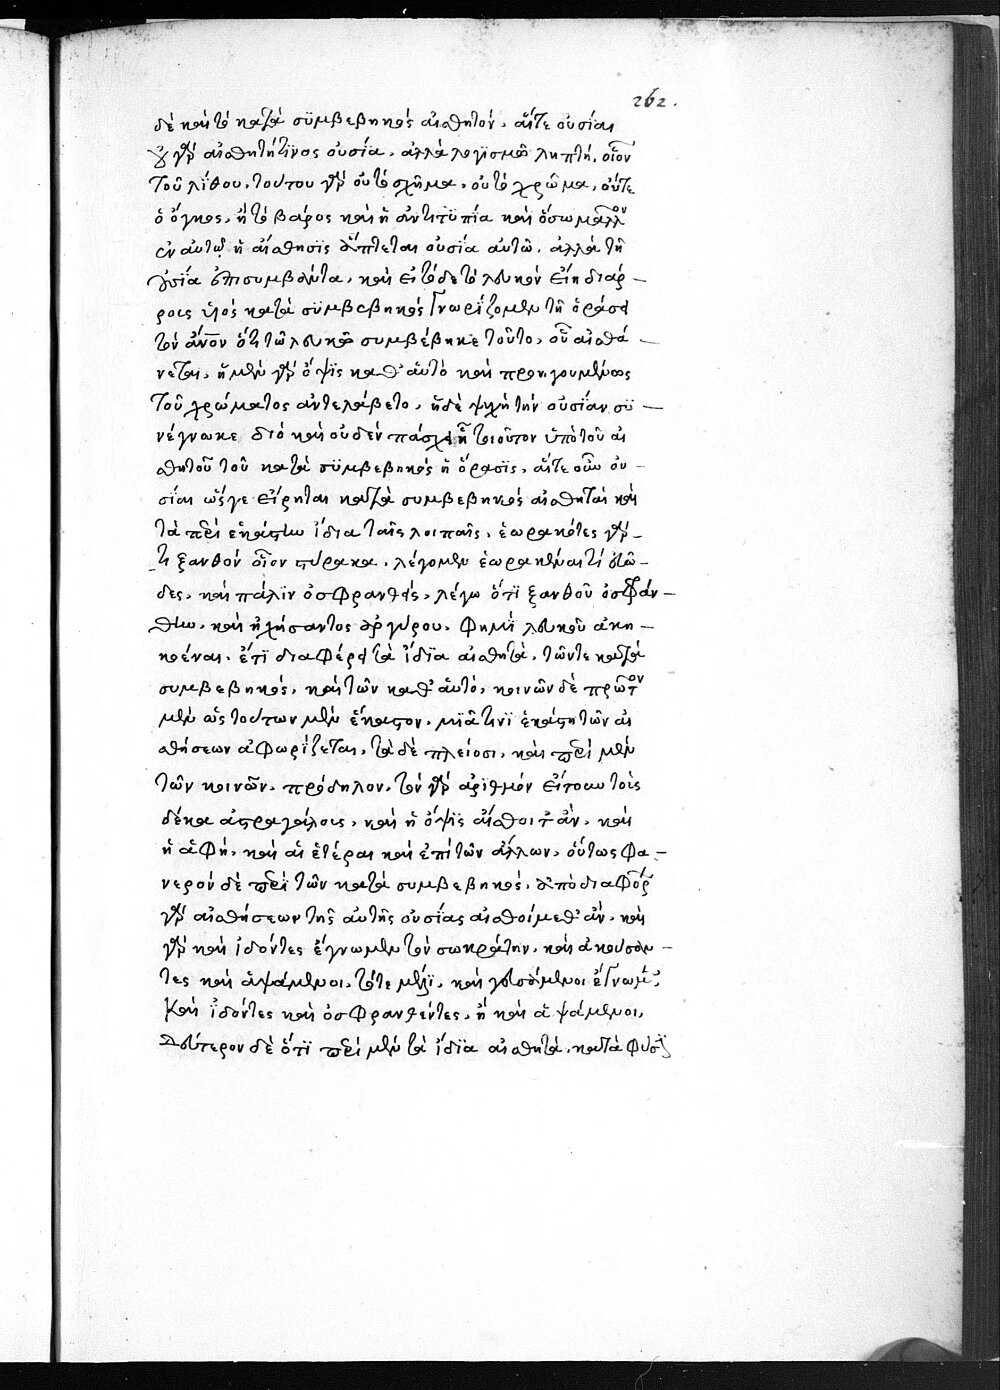 262.
δὲ καὶ τὸ κατὰ συμβεβηκὸς αἰσθητόν. αἵ τε οὐσίαι
οὐ γὰρ αἰσθητή τινος οὐσία, ἀλλὰ λογισμῶ ληπτή, οἷον
τοῦ λίθου. τούτου γὰρ οὐ τὸ σχῆμα, οὐ τὸ χρῶμα, οὔτε
ὁ ὄγκος, ἢ τὸ βάρος καὶ ἡ ἀντιτυπία καὶ ὅσων μᾶλλον
ἐν αὐτῷ ἡ αἴσθησις ἅπτεται οὐσία αὐτῶ. ἀλλὰ τῆ
οὐσία ἐπισυμβάντα. καὶ εἰ τόδε τὸ λευκὸν εἴη διάρ-
ρους υἱὸς κατὰ συμβεβηκὸς γνωρίζομεν τῆ ὁράσει
τὸν ἄνον ὅτι τῶ λευκῶ συμβέβηκε τοῦτο, οὗ αἰσθά-
νεται. ἡ μὲν γὰρ ὄψις καθ' αὑτὸ καὶ προηγουμένως
τοῦ χρώματος ἀντελάβετο, ἡ δὲ ψυχὴ τὴν οὐσίαν συ-
νέγνωκε διὸ καὶ οὐδὲν πάσχει ἧ τοιοῦτον ὑπὸ τοῦ αἰ
σθητοῦ τοῦ κατὰ συμβεβηκὸς ἡ ὅρασις. αἵ τε οὖν οὐ-
σίαι ὥς γε εἴρηται κατὰ συμβεβηκὸς αἰσθηταὶ καὶ
τὰ περὶ ἑκάστην ἴδια ταῖς λοιπαῖς. ἑωρακότες γὰρ-
τι ξανθὸν οἷον στύρακα. λέγομεν ἑωρακέναι τί εὐῶ-
δες, καὶ πάλιν ὀσφρανθεὶς, λέγω ὅτι ξανθοῦ ὀσφράν-
θην. καὶ ἠχήσαντος ἀργύρου. φημὶ λευκοῦ ἀκη-
κοέναι. ἔτι διαφέρει τὰ ἴδια αἰσθητὰ. τῶν τε κατὰ
συμβεβηκὸς, καὶ τῶν καθ' αὑτὸ, κοινῶν δὲ πρῶτον
μὲν ὡς τούτων μὲν ἕκαστον. μιᾶ τινὶ ἑκάστη τῶν αἰ
σθήσεων ἀφωρίζεται, τὰ δὲ πλείοσι. καὶ περὶ μὲν
τῶν κοινῶν, πρόδηλον. τὸν γὰρ ἀριθμὸν εἴτουν τοῖς
δέκα ἀστραγάλοις, καὶ ἡ ὄψις αἴσθοιτ' ἂν. καὶ
ἡ ἁφὴ. καὶ αἱ ἑτέραι καὶ ἐπὶ τῶν ἄλλων. οὕτως φα-
νερὸν δὲ περὶ τῶν κατὰ συμβεβηκὸς. ἀπὸ διαφόρ
γὰρ αἰσθήσεων τῆς αὐτῆς οὐσίας αἰσθοίμεθ' ἂν. καὶ
γὰρ καὶ ἰδόντες ἔγνωμεν τὸν σωκράτην, καὶ ἀκούσαν-
τες καὶ ἁψάμενοι. τότε μέλι. καὶ γευσάμενοι ἔγνωμ
καὶ ἰδόντες καὶ ὀσφρανθέντες, ἢ καὶ ἁψάμενοι.
Δεύτερον δὲ ὅτι περὶ μὲν τὰ ἴδια αἰσθητὰ. κατὰ φύσι